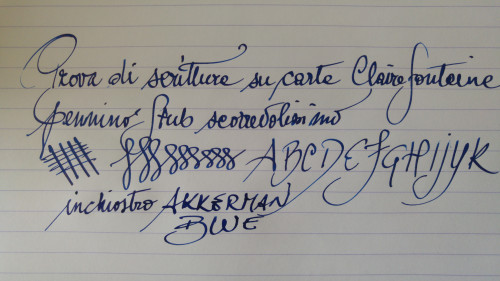 Prova di scritture su carte Clairefontaine
pennino Stub scorrevolissimo
ABCDEFGHIJYK
inchiostro AKKERMAN
BLUE